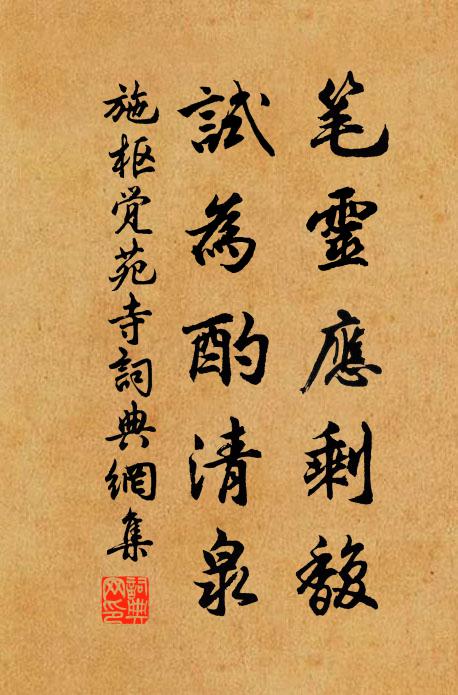 笔靈應剩馥
試為酌清泉
施枢觉苑寺詞典網集
詞典网印